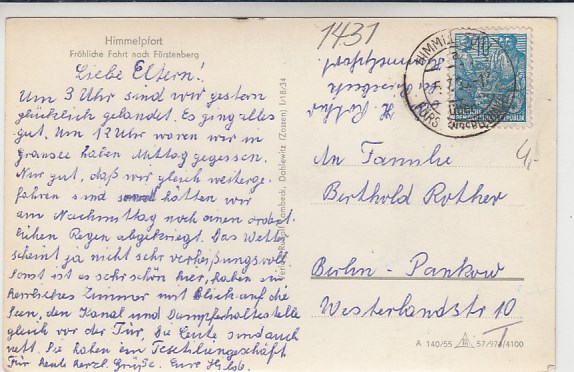 Himmelpfort
Fröhliche Fahrt nach Fürstenberg
Liebe Eltern!
Um 3 Uhr sind wir gestern
glücklich gelandet. Es ging alles
gut. Um 12 Uhr waren wir in
Gransee haben Mittag gegessen.
Nur gut, daß wir gleich weiterge-
fahren sind hätten wir
am Nachmittag noch einen ordent-
lichen Regen abgekriegt. Das Wetter
scheint ja nicht sehr verheißungsvoll
sonst ist es sehr schön hier, haben ein
herrliches Zimmer mit Blick auf die
Seen, den Kanal und Dampferhaltestelle
gleich vor der Tür. Die Leute sind auch
nett. Sie haben ein
Für heute herzl. Grüße. Eure
1431
H. Rother
Himmelpfort
10
An Familie
Berthold Rother
Berlin - Pankow
Westerlandstr 10
I
4,-
Dahlewitz (Zossen) 1/18/34
A 140/55 57/978/4100